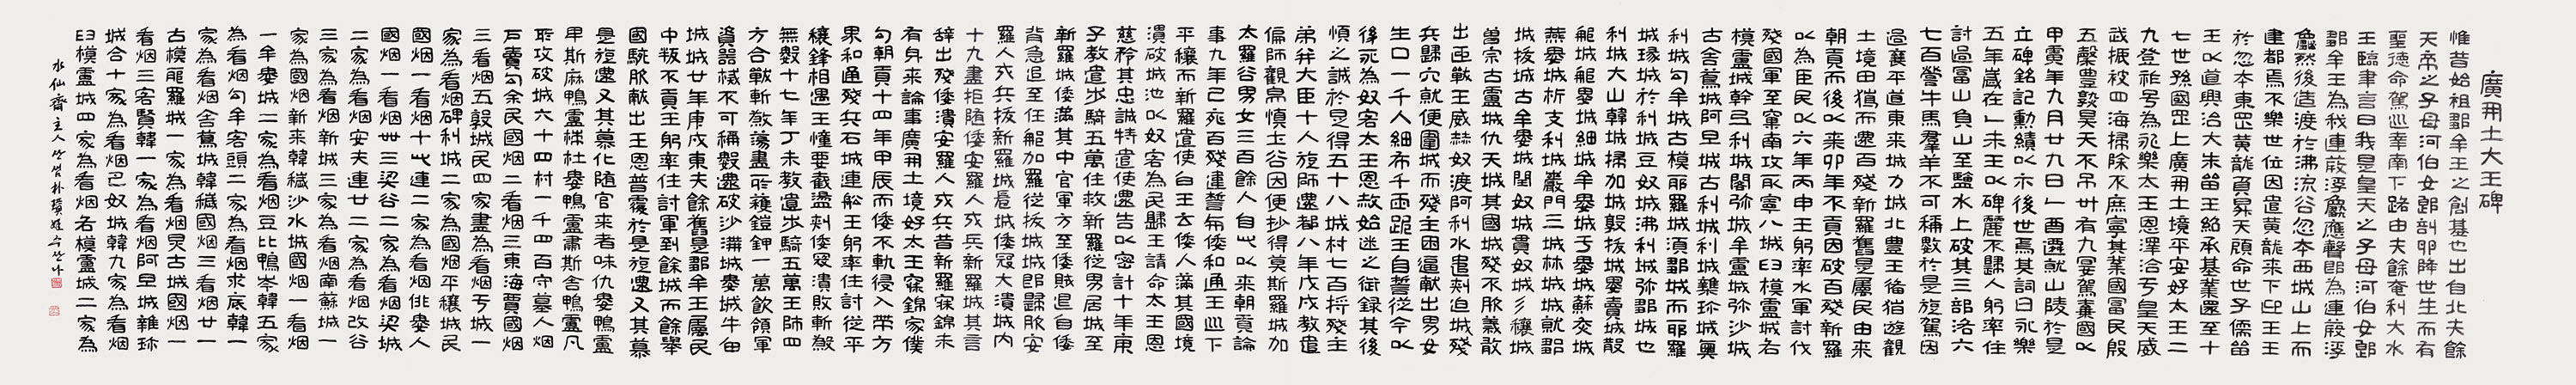 廣開土大王碑
惟昔始祖鄒牟王之創基也出自北夫餘
天帝之子母河伯女郎剖卵降世生而有
聖德命駕巡幸南下路由夫餘奄利大水
王臨聿言曰我是皇天之子母河伯女郎
鄒牟王為我連葭浮龜應聲即為連葭浮
龜然後造渡於沸流谷忽本西城山上而
建都焉不樂世位因遣黃龍來下迎王王
於忽本東罡黃龍負昇天顧命世子儒留
王以道興治大朱留王紹承基業還至十
七世孫國罡上廣開土境平安好太王二
九登祚号為永樂太王恩澤洽于皇天威
武振被四海掃除不庶寧其業國富民殷
五穀豊熟昊天不吊卅有九宴駕棄國以
甲寅年九月廿九日乙酉遷就山陵於是
立碑銘記勳績以示後世焉其詞曰永樂
五年歲在乙未王以碑麗不歸人躬率住
討過富山負山至鹽水上破其三部洛六
七百營牛馬群羊不可稱數於是旋駕因
過襄平道東來城力城北豊王備猎遊觀
土境田猎而還百殘新羅舊是屬民由來
朝貢而後以來卯年不貢因破百殘新羅
以為臣民以六年丙申王躬率水軍討伐
殘國軍至窠南攻取寧八城臼模盧城各
模盧城幹弖利城閣弥城牟盧城弥沙城
古舍蔦城阿旦城古利城利城雜珍城奧
利城勾牟城古模耶羅城須鄒城而耶羅
城瑑城於利城豆奴城沸利城弥鄒城也
利城大山韓城掃加城敦拔城婁賣城散
那城能婁城細城牟婁城于婁城蘇灰城
燕婁城析支利城巖門三城林城城就鄒
城拔城古牟婁城閏奴城貫奴城彡穰城
曾宗古盧城仇天城其國城殘不服義敢
出迊戰王威赫奴渡阿利水遣刺迫城殘
兵歸穴就便圍城而殘主困逼献出男女
生口一千人細布千匹跪王自誓從今以
後死為奴客太王恩赦始迷之御錄其後
慎之誠於是得五十八城村七百将殘主
弟并大臣十人旋師還都八年戊戌教遣
偏師觀帛慎土谷因便抄得莫斯羅城加
太羅谷男女三百餘人自此以來朝貢論
事九年己亥百殘違誓与倭和通王巡下
平穰而新羅遣使白王云倭人滿其國境
潰破城池以奴客為民歸王請命太王恩
慈矜其忠誠特遣使還告以密計十年庚
子教遣步騎五萬住救新羅從男居城至
新羅城倭滿其中官軍方至倭賊退自倭
背急追至任那加羅從拔城城即歸服安
羅人戍兵拔新羅城晨城倭寇大潰城內
十九盡拒隨倭安羅人戍兵新羅城其言
辞出殘倭潰安羅人戍兵昔新羅寐錦未
有身来論事廣開土境好太王寐錦家僕
勾朝貢十四年甲辰而倭不軌侵入帶方
界和通殘兵石城連舩王躬率住討從平
穰鋒相遇王幢要截盪刺倭寇潰敗斬煞
無數十七年丁未教遣步騎五萬王師四
方合戰斬煞蕩盡所獲鎧鉀一萬飲領軍
資器械不可稱數還破沙溝城婁城牛由
城城廿年庚戌東夫餘舊是鄒牟王屬民
中叛不貢王躬率住討軍到餘城而餘舉
國駭服献出王恩普覆於是旋還又其慕
是旋還又其慕化隨官來者味仇婁鴨盧
卑斯麻鴨盧椯社婁鴨盧肅斯舍鴨盧凡
所攻破城六十四村一千四百守墓人烟
户賣勾余民國烟二看烟三東海賈國烟
三看烟五敦城民四家盡為看烟于城一
家為看烟碑利城二家為國烟平穰城民
國烟一看烟十此連二家為看烟俳婁人
國烟一看烟卌三梁谷二家為看烟梁城
二家為看烟安夫連廿二家為看烟改谷
三家為看烟新城三家為看烟南蘇城一
家為國烟新來韓穢沙水城國烟一看烟
一牟婁城二家為看烟豆比鴨岑韓五家
為看烟勾牟客頭二家為看烟求底韓一
家為看烟舍蔦城韓穢國烟三看烟廿一
古模耶羅城一家為看烟炅古城國烟一
看烟三客賢韓一家為看烟阿旦城雜珍
城合十家為看烟巴奴城韓九家為看烟
臼模盧城四家為看烟各模盧城二家為
水仙齋主人